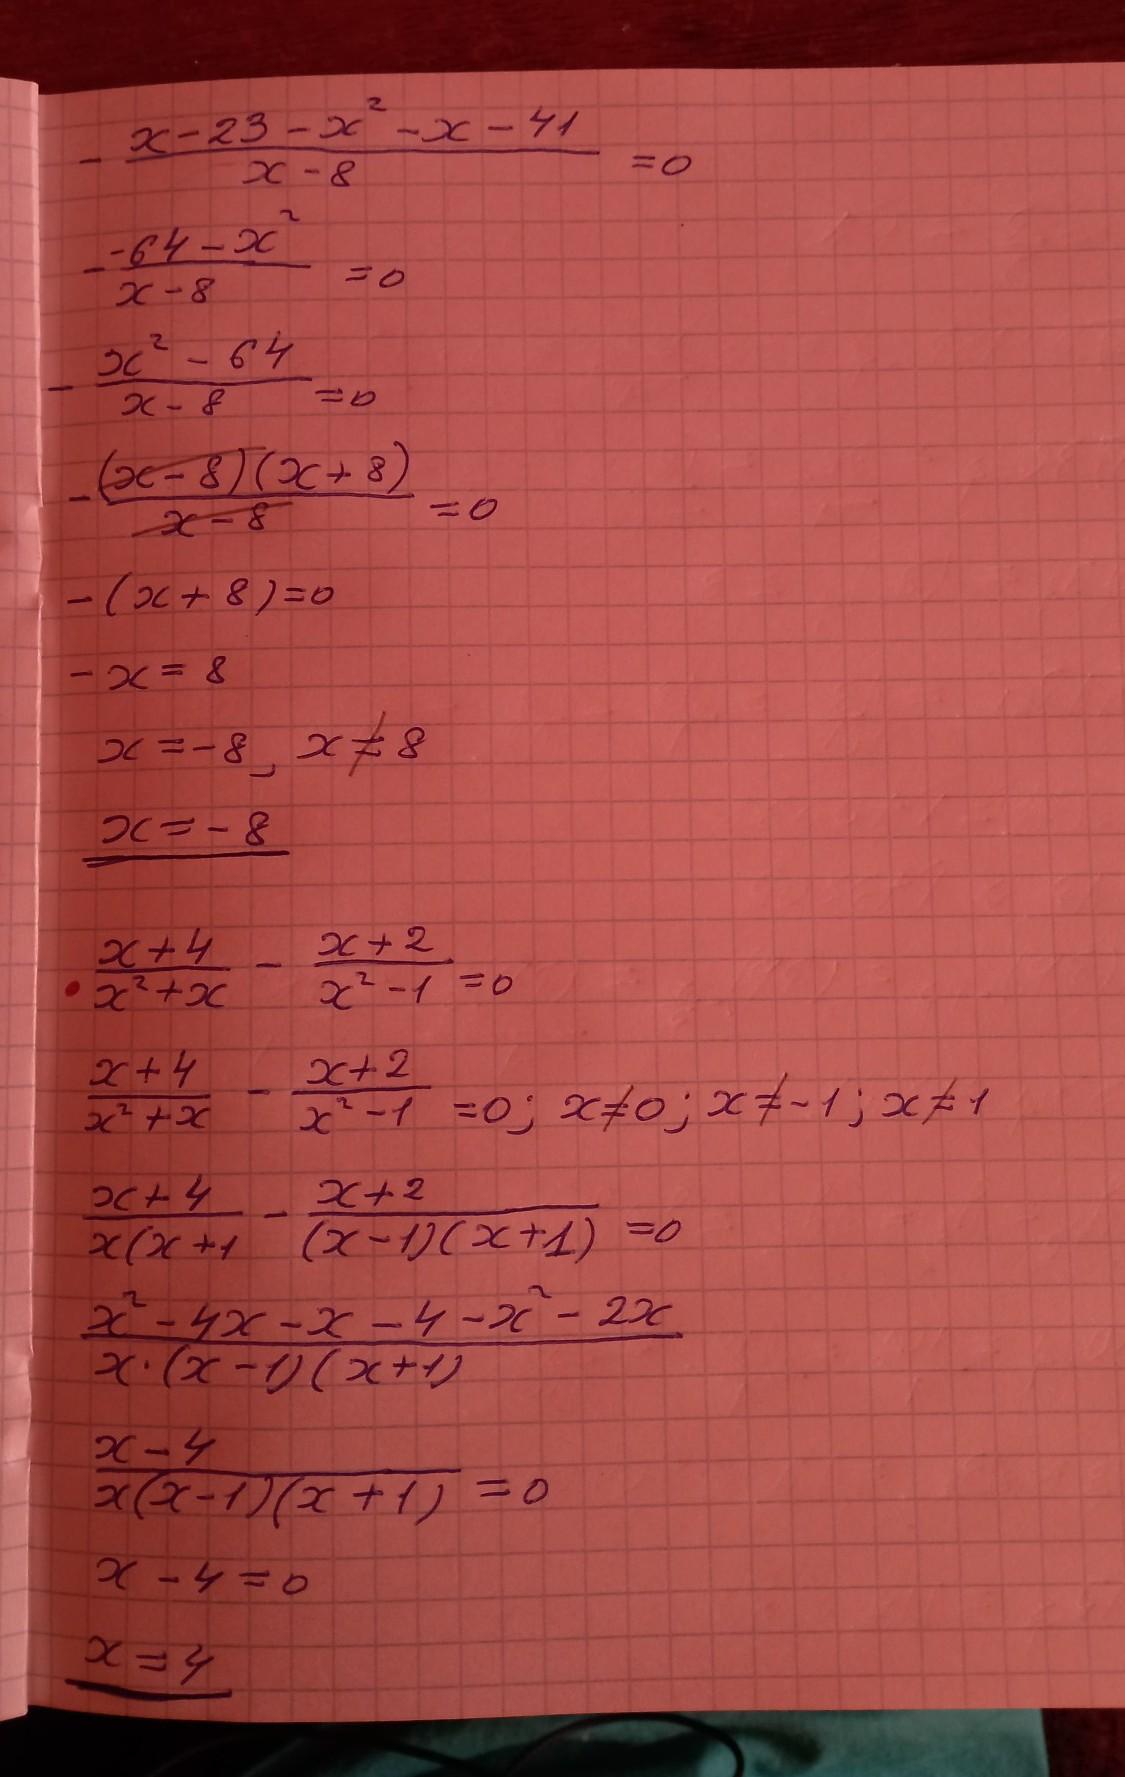 - (x - 23 - x² - x - 41)/(x - 8) = 0
- (-64 - x²)/(x - 8) = 0
- (x² - 64)/(x - 8) = 0
- ((x - 8)(x + 8))/(x - 8) = 0
- (x + 8) = 0
- x = 8
x = -8, x ≠ 8
x = -8
(x + 4)/(x² + x) - (x + 2)/(x² - 1) = 0
(x + 4)/(x² + x) - (x + 2)/(x² - 1) = 0; x ≠ 0; x ≠ -1; x ≠ 1
(x + 4)/(x(x + 1) - (x + 2)/((x - 1)(x + 1)) = 0
(x² - 4x - x - 4 - x² - 2x)/(x · (x - 1)(x + 1))
(x - 4)/(x(x - 1)(x + 1)) = 0
x - 4 = 0
x = 4